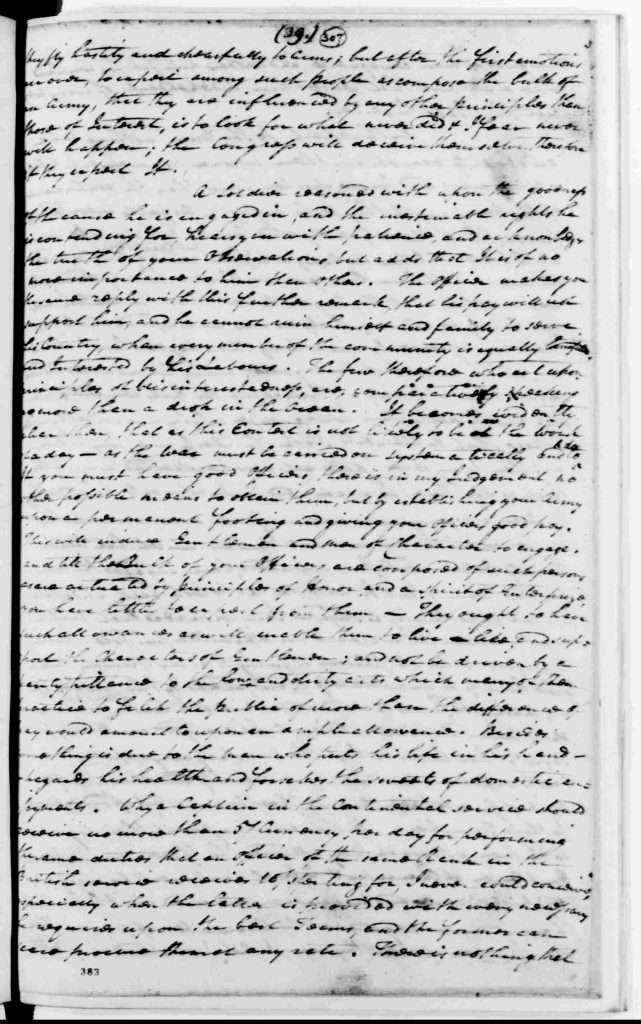 (39.) 307
they fly hastily and chearfully to Arms; but after the first emotions
are over, to expect among such People as compose the bulk of
an Army, that they are influenced by any other principles than
those of Interest, is to look for what never did & I fear never
will happen; the Congress will deceive themselves therefore
if they expect It.
A Soldier reasoned with upon the goodness
of the cause he is engaged in, and the inestimable rights he
is contending for, hears you with patience, and acknowledges
the truth of your Observations, but adds that It is of no
more importance to him than others. The Officer makes you
the same reply with this further remark, that his pay will not
support him, and he cannot ruin himself and family to serve
his Country, when every member of the community is equally
and Interested by his Labours. The few therefore who act upon
principles of disinterestedness, are, comparatively speaking
no more than a drop in the Ocean. It becomes evident
then, that as this Contest is not likely to be the Work
of a day — as the War must be carried on systematically and to do
it you must have good Officers, there is in my Judgement no
other possible means to obtain them, but by establishing your Army
upon a permanent footing and giving your Officers good pay.
This will induce Gentlemen and men of Character to engage,
and till the Bulk of your Officers are composed of such persons
as are actuated by principles of Honor and a spirit of Enterprize,
you have little to expect from them — They ought to have
such allowances as will enable them to live like, and sup-
port the Characters of Gentlemen; and not be driven by a
scanty pittance to the low, and dirty arts which many of them
practice to filch the Public of more than the difference of
pay would amount to upon an ample allowance. Besides
something is due to the man who puts his life in his hand —
hazards his health, and forsakes the sweets of domestic en-
joyments. Why a Captain in the Continental service should
receive no more than 5/ Currency per day for performing
the same duties that an Officer of the same Rank in the
British service receives 10/ Sterling for, I never could conceive,
especially when the latter is provided with every necessary
he requires upon the best Terms, and the former can
scarce procure them at any rate. There is nothing that
383